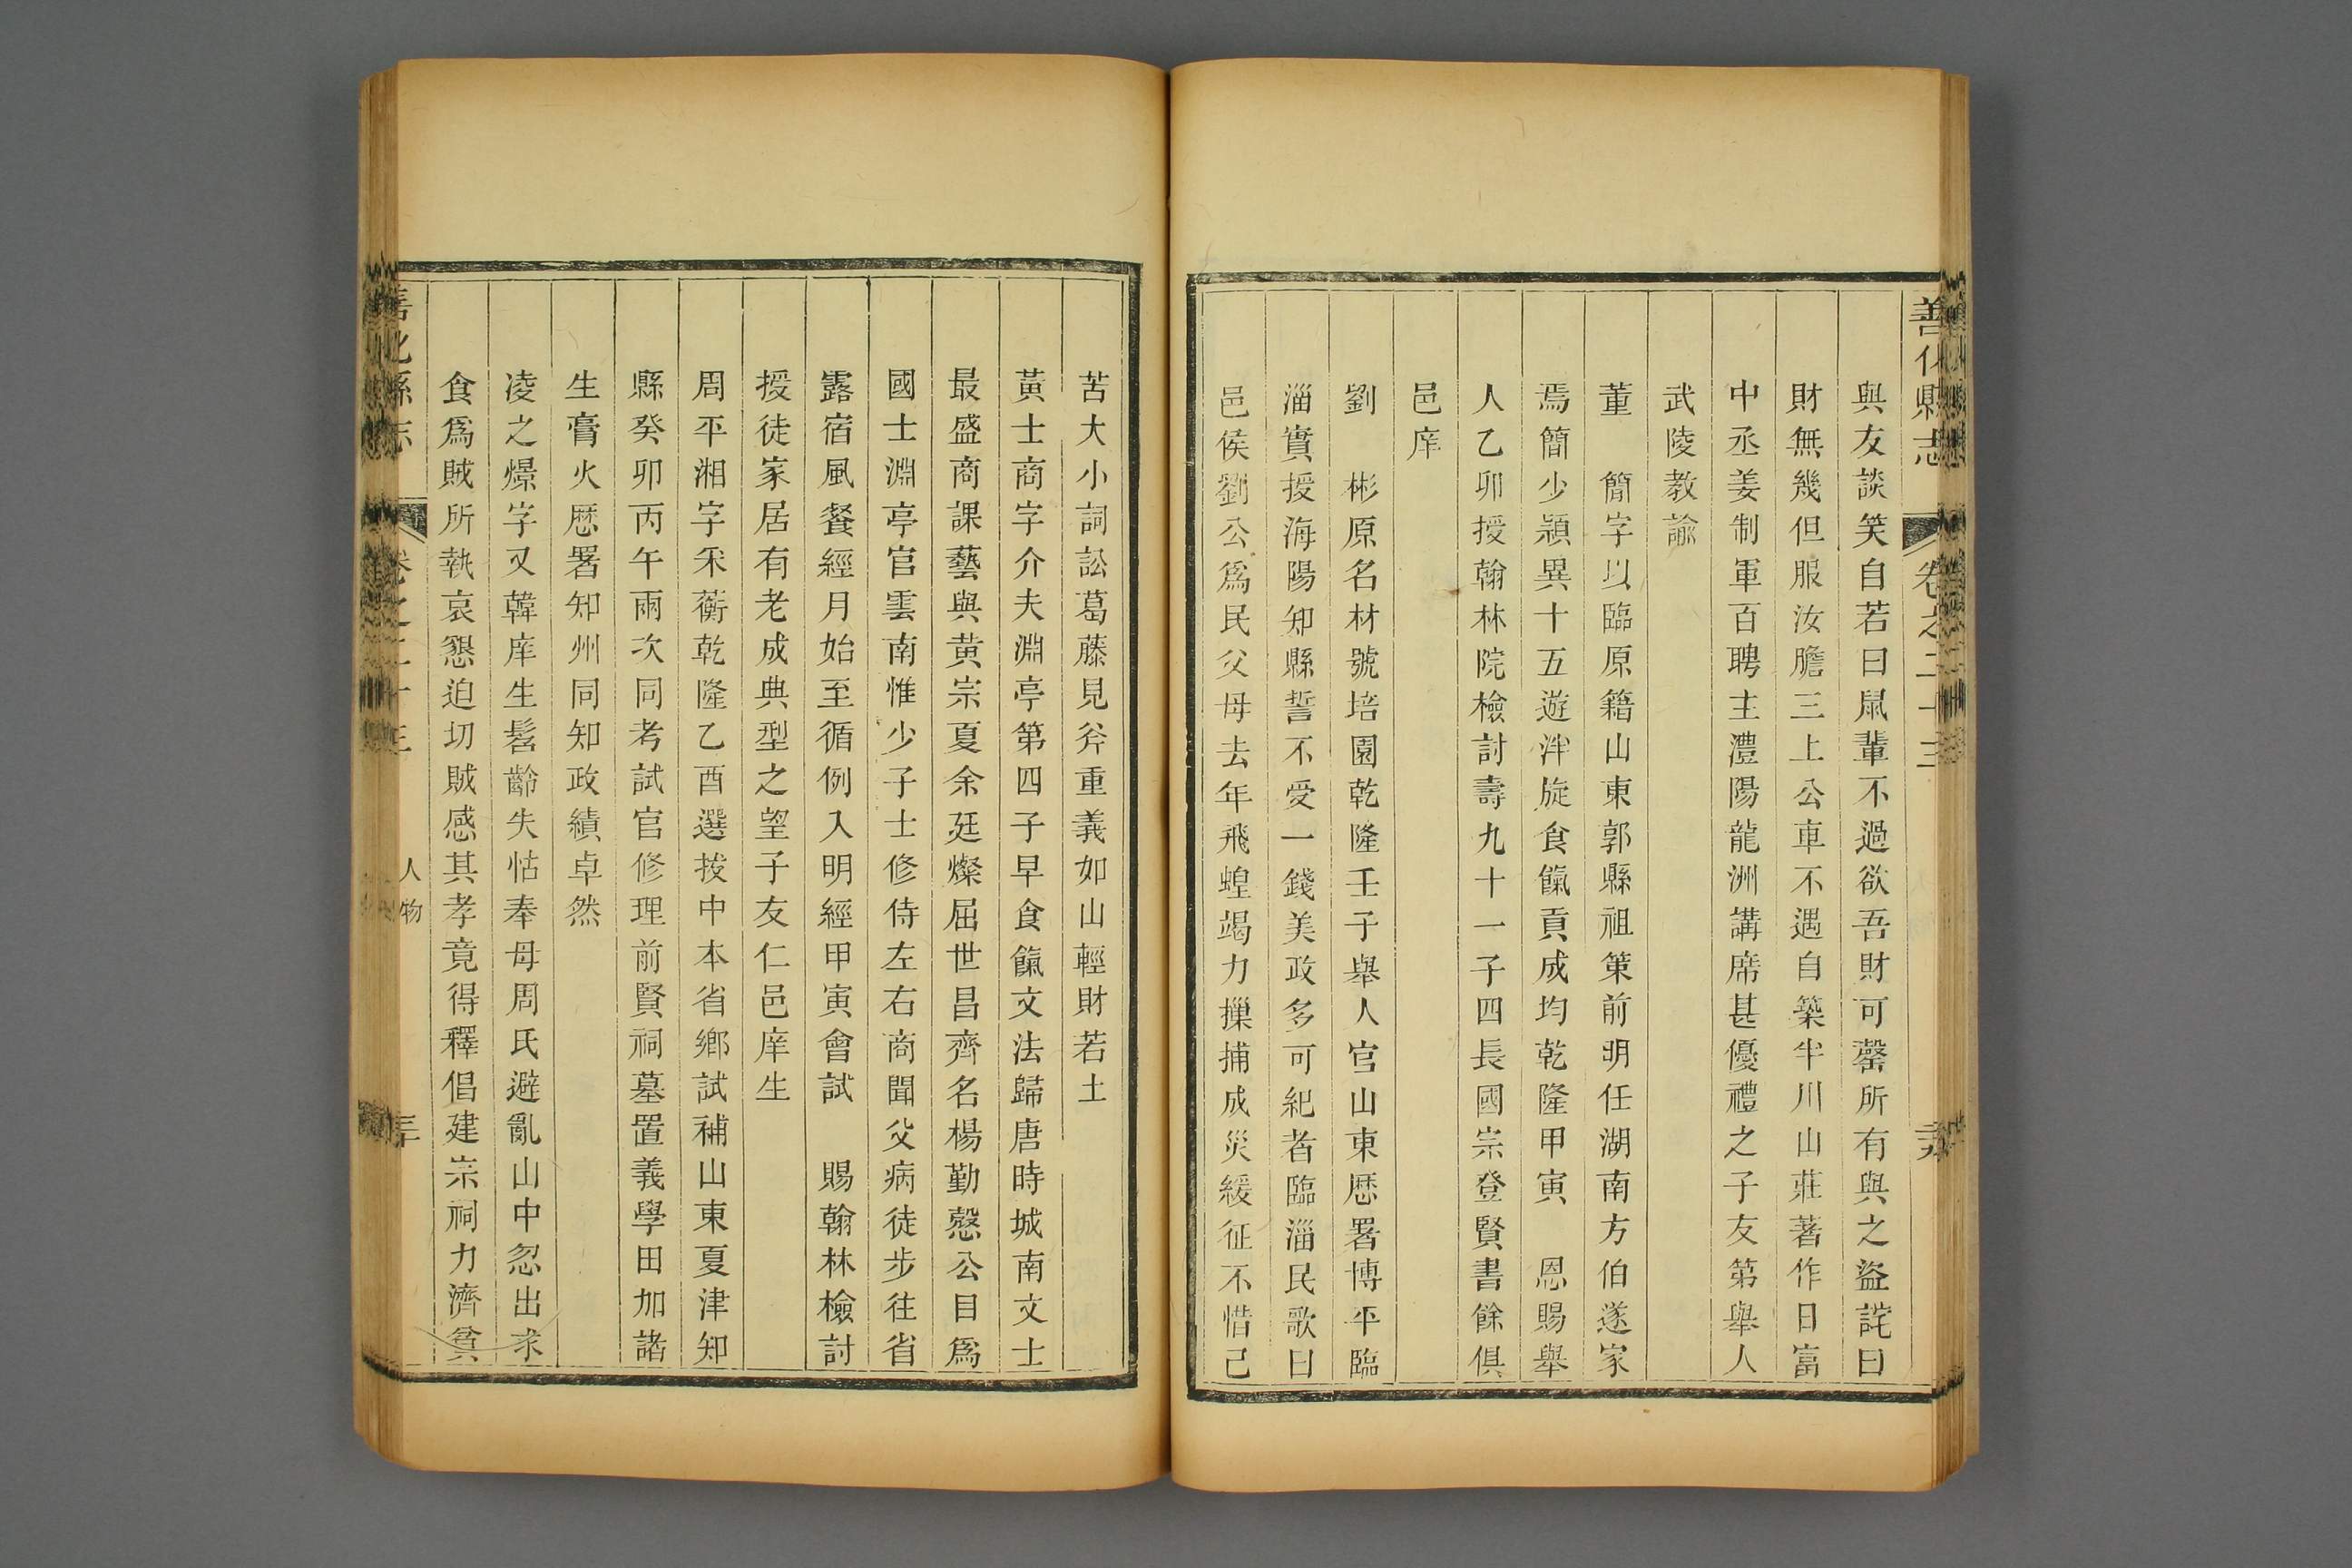 善化縣志 卷之二十三
與友談笑自若曰鼠輩不過欲吾財可罄所有與之盜詫曰
財無幾但服汝膽三上公車不遇自築半川山莊著作日富
中丞姜制軍百聘主澧陽龍洲講席甚優禮之子友第舉人
武陵教諭
董 簡字以臨原籍山東郭縣祖策前明任湖南方伯遂家
焉簡少穎異十五遊泮旋食餼貢成均乾隆甲寅 恩賜舉
人乙卯授翰林院檢討壽九十一子四長國宗登賢書餘俱
邑庠
劉 彬原名材號培園乾隆壬子舉人官山東歷署博平臨
淄實授海陽知縣誓不受一錢美政多可紀者臨淄民歌曰
邑侯劉公爲民父母去年飛蝗竭力撲捕成災緩征不惜己
苦大小詞訟葛藤見斧重義如山輕財若土
黃士商字介夫淵亭第四子早食餼文法歸唐時城南文士
最盛商課藝與黃宗夏余廷燦屈世昌齊名楊勤慤公目爲
國士淵亭官雲南惟少子士修侍左右商聞父病徒步往省
露宿風餐經月始至循例入明經甲寅會試 賜翰林檢討
授徒家居有老成典型之望子友仁邑庠生
周平湘字釆蘅乾隆乙酉選拔中本省鄉試補山東夏津知
縣癸卯丙午兩次同考試官修理前賢祠墓置義學田加諸
生膏火歷署知州同知政績卓然
凌之燝字又韓庠生髫齡失怙奉母周氏避亂山中忽出求
食爲賊所執哀懇迫切賊感其孝竟得釋倡建宗祠力濟貧
善化縣志 卷之二十三 人物 三十